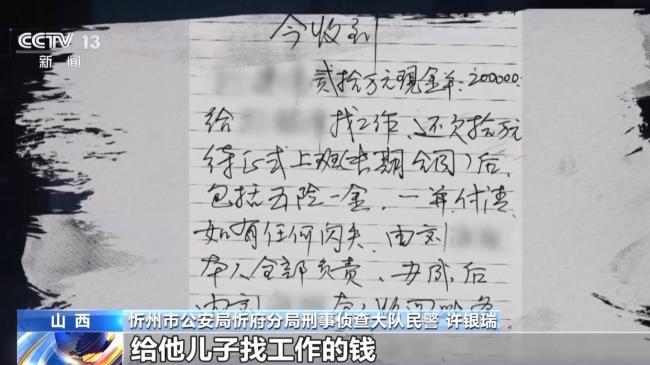 CCTV 13
新闻
今收到
贰拾万元现金,¥:200000.
给 找工作,还欠拾万元
待正式上班(长期合同)后,
包括五险一金,一并付清,
如有任何闪失,由刘
本人全部负责,办成后
由刘
山西
忻州市公安局忻府分局刑事侦查大队民警 许银瑞
给他儿子找工作的钱